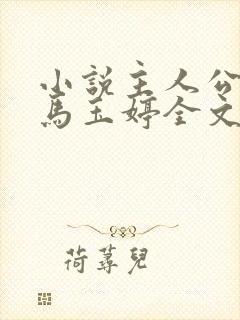 小說主人公
馬玉婷全文
荷蕁兒